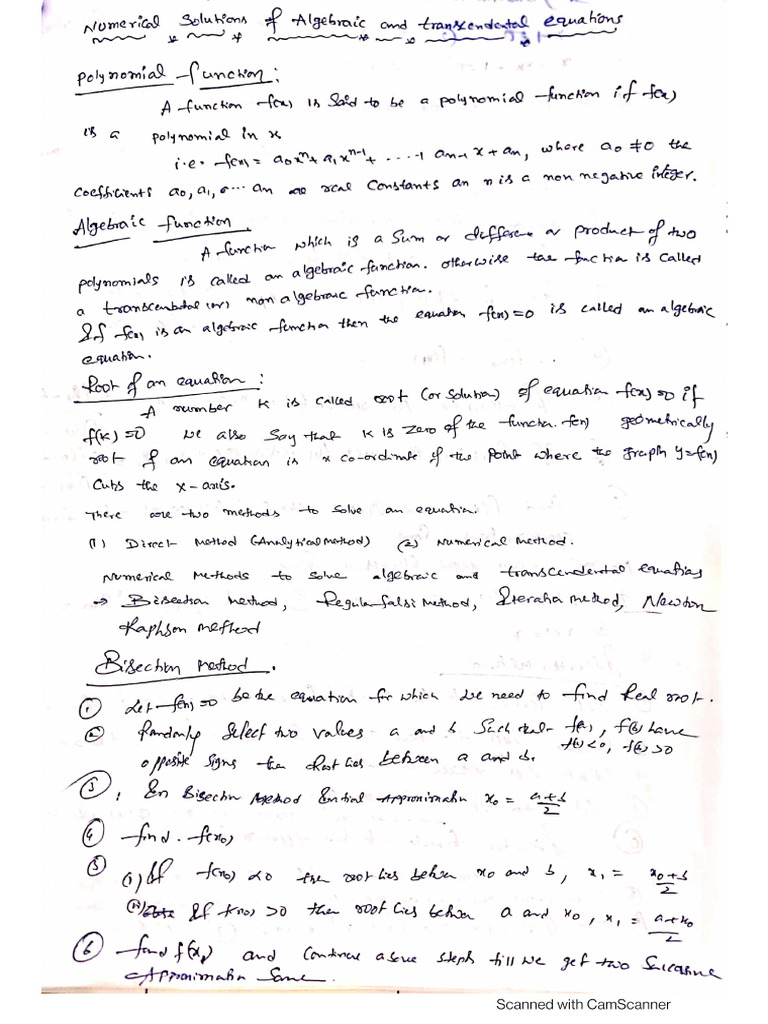 Numerical Solutions of Algebraic and transcendental equations
Polynomial function:
A function f(x) is said to be a polynomial function if f(x)
is a polynomial in x
i.e. f(x) = a₀xⁿ + a₁xⁿ⁻¹ + ....+ aₙ₋₁ x + aₙ, where a₀ ≠ 0 the
coefficients a₀, a₁, ... aₙ are real constants an n is a non negative integer.
Algebraic function
A function which is a sum or difference or product of two
polynomials is called an algebraic function. otherwise the function is called
a transcendental (or) non algebraic function.
If f(x) is an algebraic function then the equation f(x)=0 is called an algebraic
equation.
Root of an equation:
A number K is called root (or solution) of equation f(x)=0 if
f(K)=0 we also say that K is zero of the function f(x) geometrically
root of an equation is x co-ordinate of the point where the graph y=f(x)
cuts the x-axis.
There are two methods to solve an equation:
(1) Direct method (Analytical method) (2) Numerical method.
Numerical methods to solve algebraic and transcendental equations
→ Bisection method, Regula falsi method, Iteration method, Newton
Raphson method
Bisection method.
① Let f(x)=0 be the equation for which we need to find real root.
② Randomly select two values a and b such that f(a), f(b) have
f(a)<0, f(b)>0
opposite signs then root lies between a and b.
③ In Bisection method Initial approximation x₀ = (a+b)/2
④ find f(x₀)
⑤ (i) If f(x₀) <0 then root lies between x₀ and b, x₁ = (x₀+b)/2
(ii) If f(x₀) >0 then root lies between a and x₀, x₁ = (a+x₀)/2
⑥ find f(x₁) and continue above steps till we get two successive
Approximation same.
Scanned with CamScanner